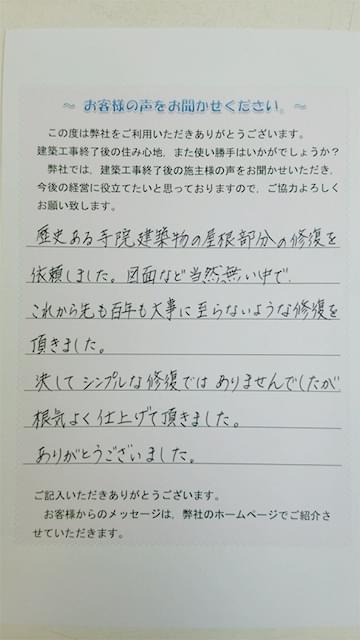 ～ お客様の声をお聞かせください。～
この度は弊社をご利用いただきありがとうございます。
建築工事終了後の住み心地，また使い勝手はいかがでしょうか？
弊社では，建築工事終了後の施主様の声をお聞かせいただき，
今後の経営に役立てたいと思っておりますので，ご協力よろしく
お願い致します。
歴史ある寺院建築物の屋根部分の修復を
依頼しました。図面など当然無い中で、
これから先も百年も大事に至らないような修復を
頂きました。
決してシンプルな修復ではありませんでしたが
根気よく仕上げて頂きました。
ありがとうございました。
ご記入いただきありがとうございます。
お客様からのメッセージは，弊社のホームページでご紹介さ
せていただきます。